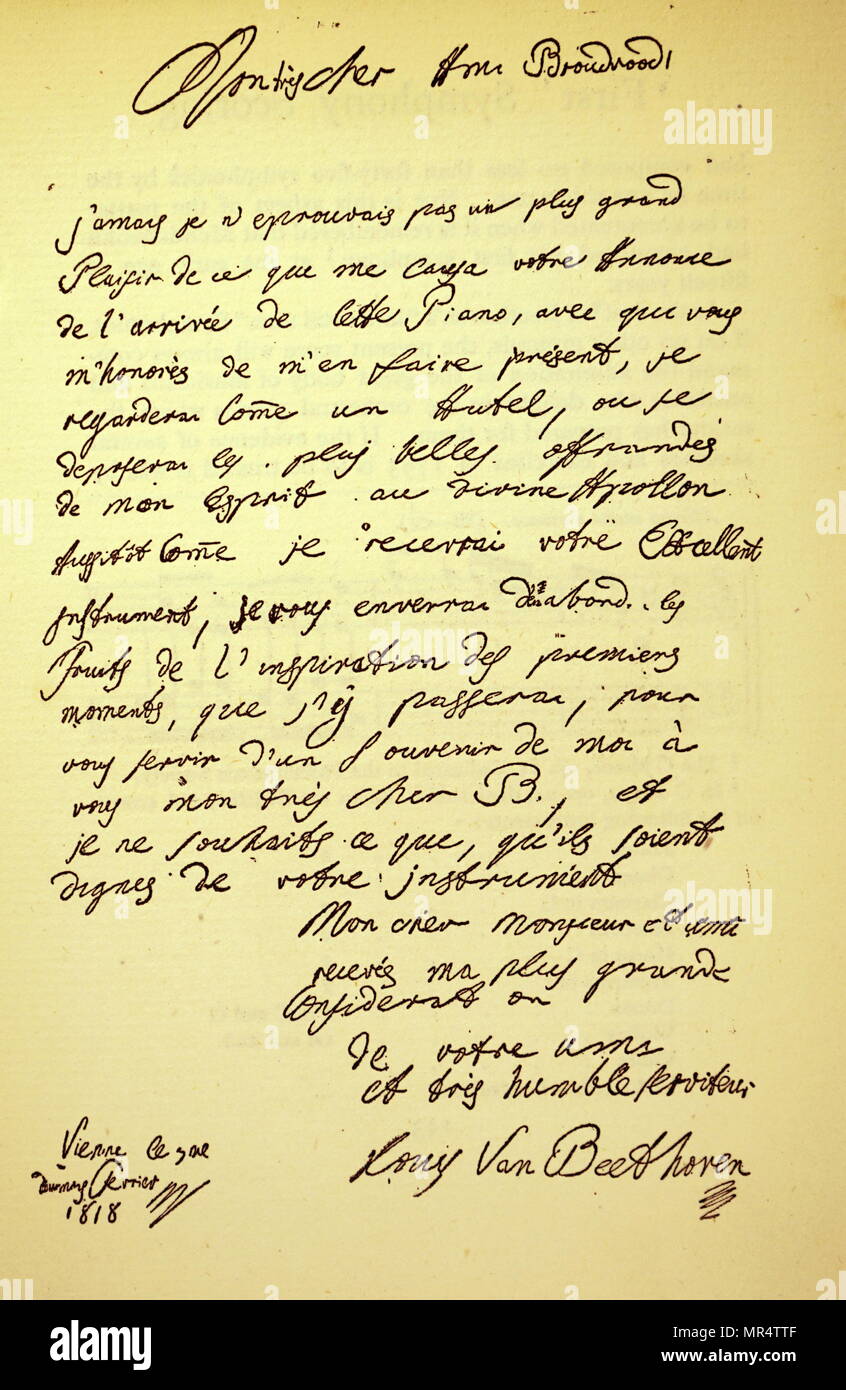 Mon très cher Ami Broudvood!
j'amais je n'eprouvais pas un plus grand
Plaisir de ce que me causa votre Annonce
de l'arrivée de Cette Piano, avec que vous
m'honorès de m'en faire prèsent, je
regarderai Come un Autel, ou je
deposerai les plus belles offrandes
de mon Esprit au divine Apollon
Aussitôt Come je recevrai votre Excellent
instrument, je vous enverrai d'abord les
Fruits de l'inspiration des premiers
moments, que j'y passerai, pour
vous servir d'un Souvenir de moi à
vous mon très cher B., et
je ne souhaits ce que, qu'ils soient
dignes de votre instrument
Mon cher Monsieur et ami
recevés ma plus grande
Consideration
de votre ami
et très humble serviteur
Louis Van Beethoven
Vienne le 3me
du mois Fevrier
1818
alamy stock photo
MR4TTF
www.alamy.com